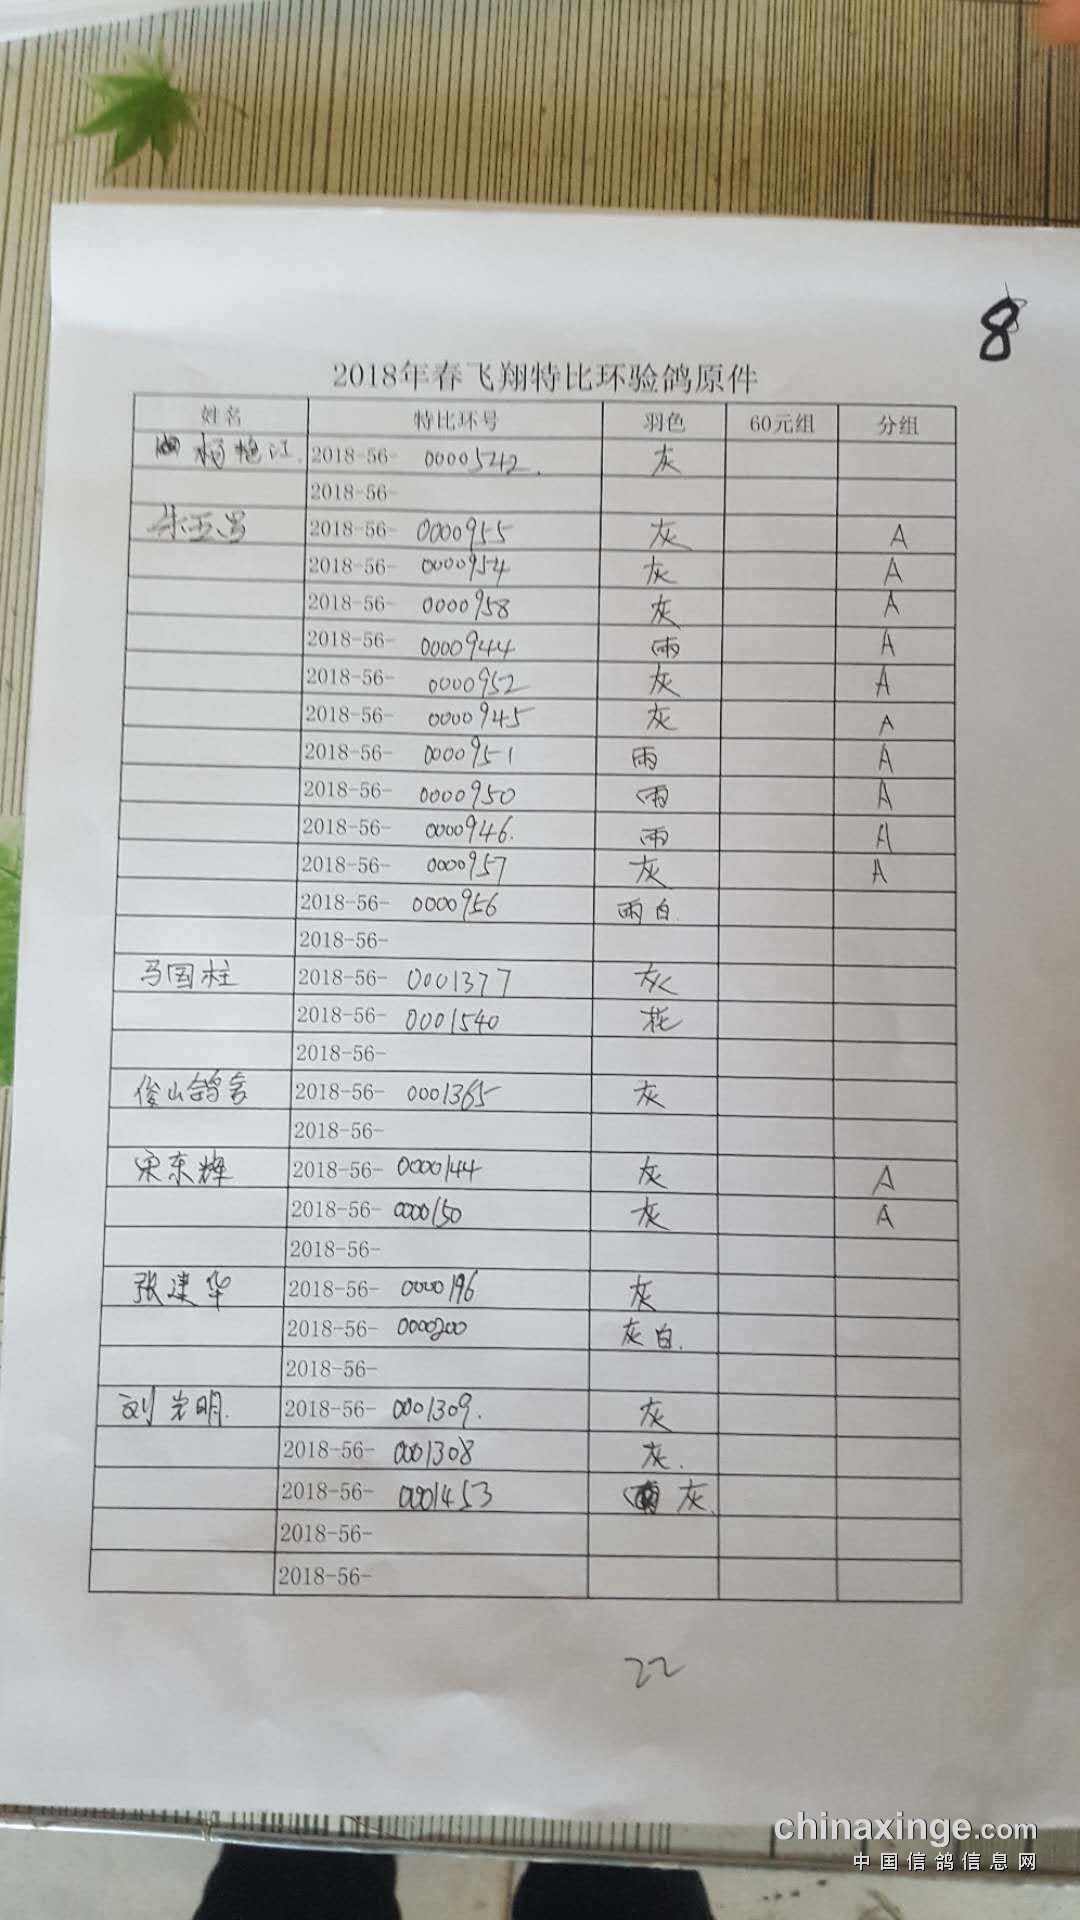 8
2018年春飞翔特比环验鸽原件
姓名 特比环号 羽色 60元组 分组
杨艳江. 2018-56- 0000542. 灰
2018-56-
朱玉昌 2018-56- 0000955 灰 A
2018-56- 0000954 灰 A
2018-56- 0000958 灰 A
2018-56- 0000944 雨 A
2018-56- 0000952 灰 A
2018-56- 0000945 灰 A
2018-56- 0000951 雨 A
2018-56- 0000950 雨 A
2018-56- 0000946. 雨 A
2018-56- 0000957 灰 A
2018-56- 0000956 雨白.
2018-56-
马国柱 2018-56- 0001377 灰
2018-56- 0001540 花
2018-56-
俊山鸽舍 2018-56- 0001365 灰
2018-56-
宋东辉 2018-56- 0000144 灰 A
2018-56- 0000150 灰 A
2018-56-
张建华 2018-56- 0000196 灰
2018-56- 0000200 灰白.
2018-56-
刘光明. 2018-56- 0001309. 灰
2018-56- 0001308 灰.
2018-56- 0001453 灰.
2018-56-
2018-56-
22
chinaxinge.com
中国信鸽信息网